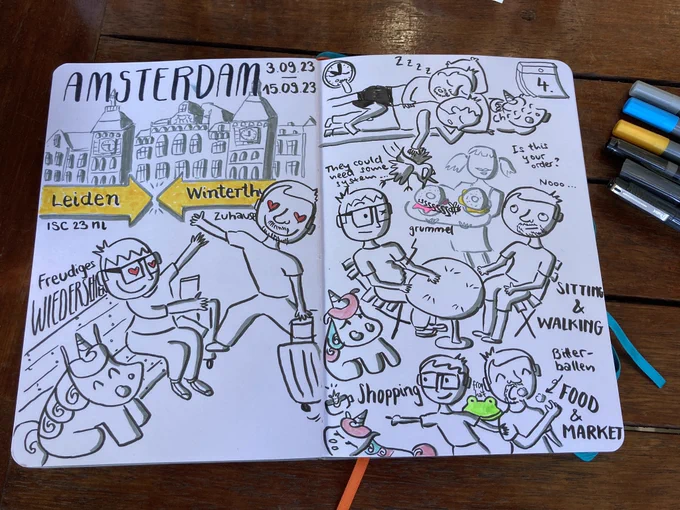 AMSTERDAM
3.09.23
15.09.23
Leiden
Winterth
ISC 23 nl
zuhause
Freudiges
WIEDERSEHE
zzzz
4.
They could
need some
system...
Is this
your
order?
Nooo...
grummel
SITTING
&
WALKING
Shopping
Bitter-
ballen
FOOD
&
MARKET